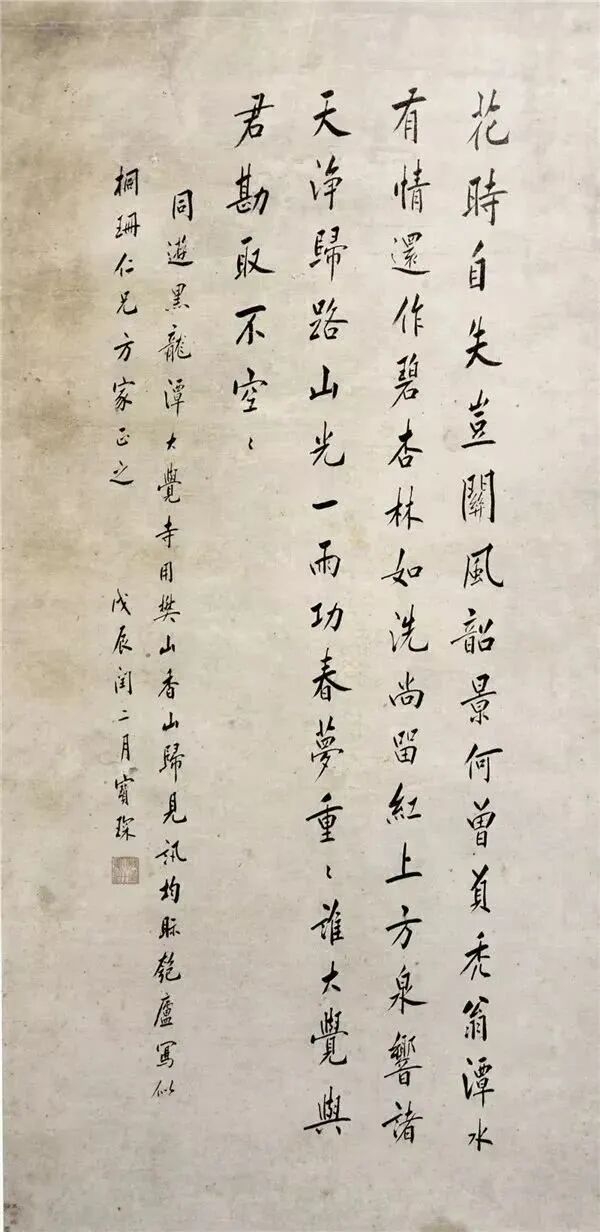 花時自失豈關風韶景何曾負禿翁潭水
有情還作碧杏林如洗尚留紅上方泉響諸
天淨歸路山光一雨功春夢重〻誰大覺與
君勘取不空〻
同遊黑龍潭大覺寺用樊山香山歸見訊均眎匏廬寫似
桐珊仁兄方家正之
戊辰閏二月寶琛